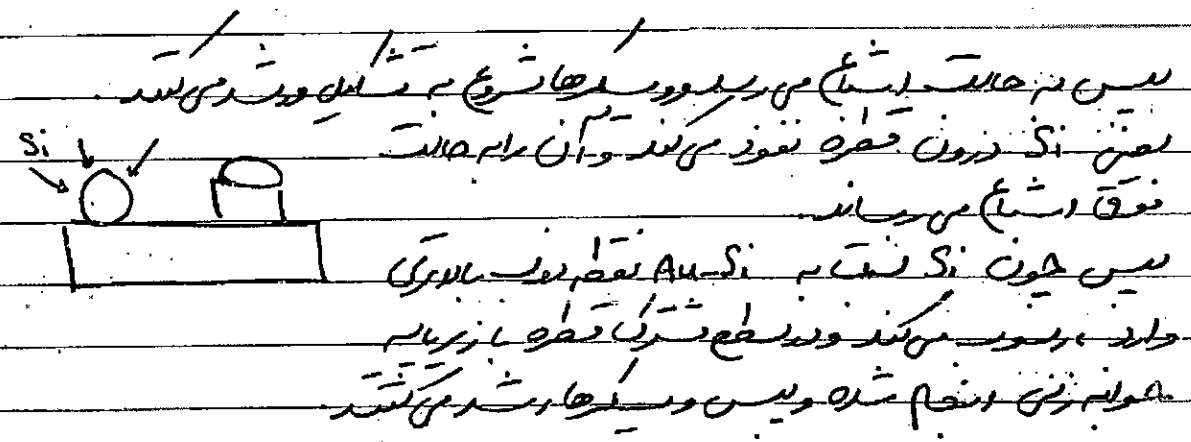 سپس به حالت اشباع می رسد و ویسکرها شروع به تشکیل و رشد می کنند.
یعنی Si درون قطره نفوذ می کند و آن را به حالت
Si
فوق اشباع می رساند.
سپس چون Si نسبت به Au-Si نقطه ذوب بالاتری
دارد، رسوب می کند و در سطح مشترک قطره با زیرپایه
جوانه زنی انجام شده و سپس ویسکرها رشد می کنند.